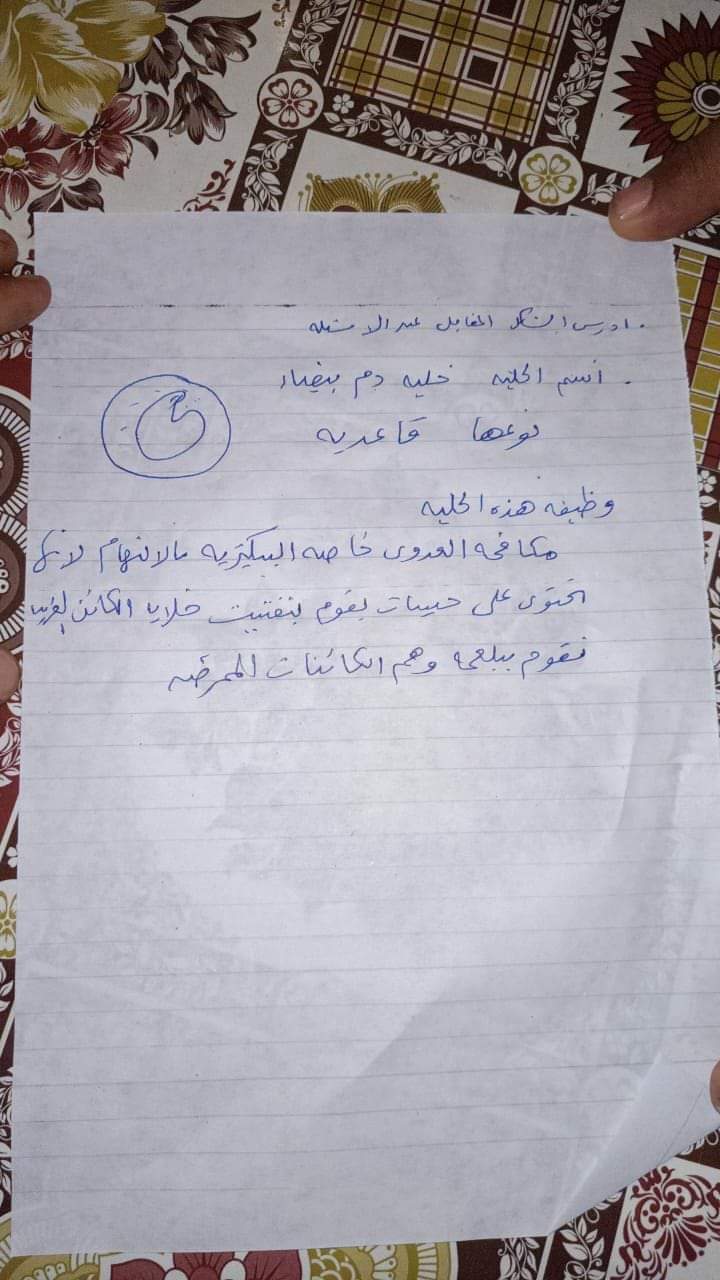 . ادرس الشكل المقابل عند الاسئله
. اسم الخليه خليه دم بيضاء
نوعها قاعديه
وظيفه هذه الخليه
مكافحه العدوى خاصه البكتيريه بالالتهام لانها
تحتوى على حبيبات يقوم بتفتيت خلايا الكائن الغريب
تقوم ببلعمه وهم الكائنات الممرضه